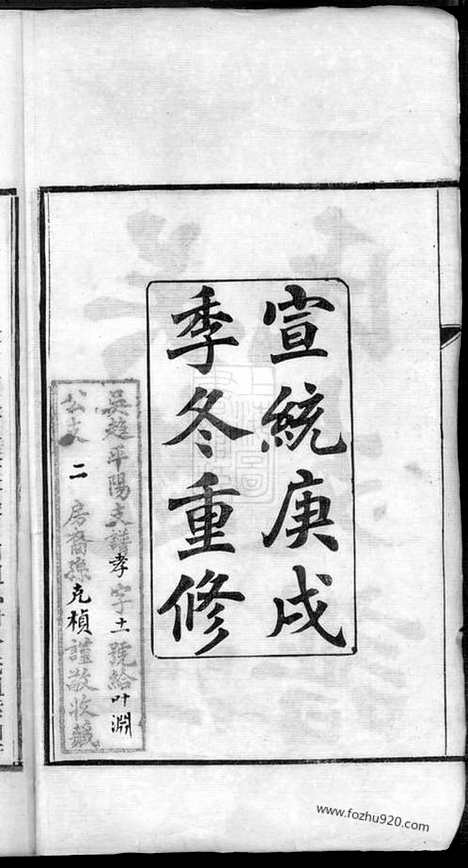 宣統庚戌
季冬重修
吳越平陽支譜孝字十一號給叶淵
公支二房裔孫克楨謹敬收藏
www.fozhu920.com